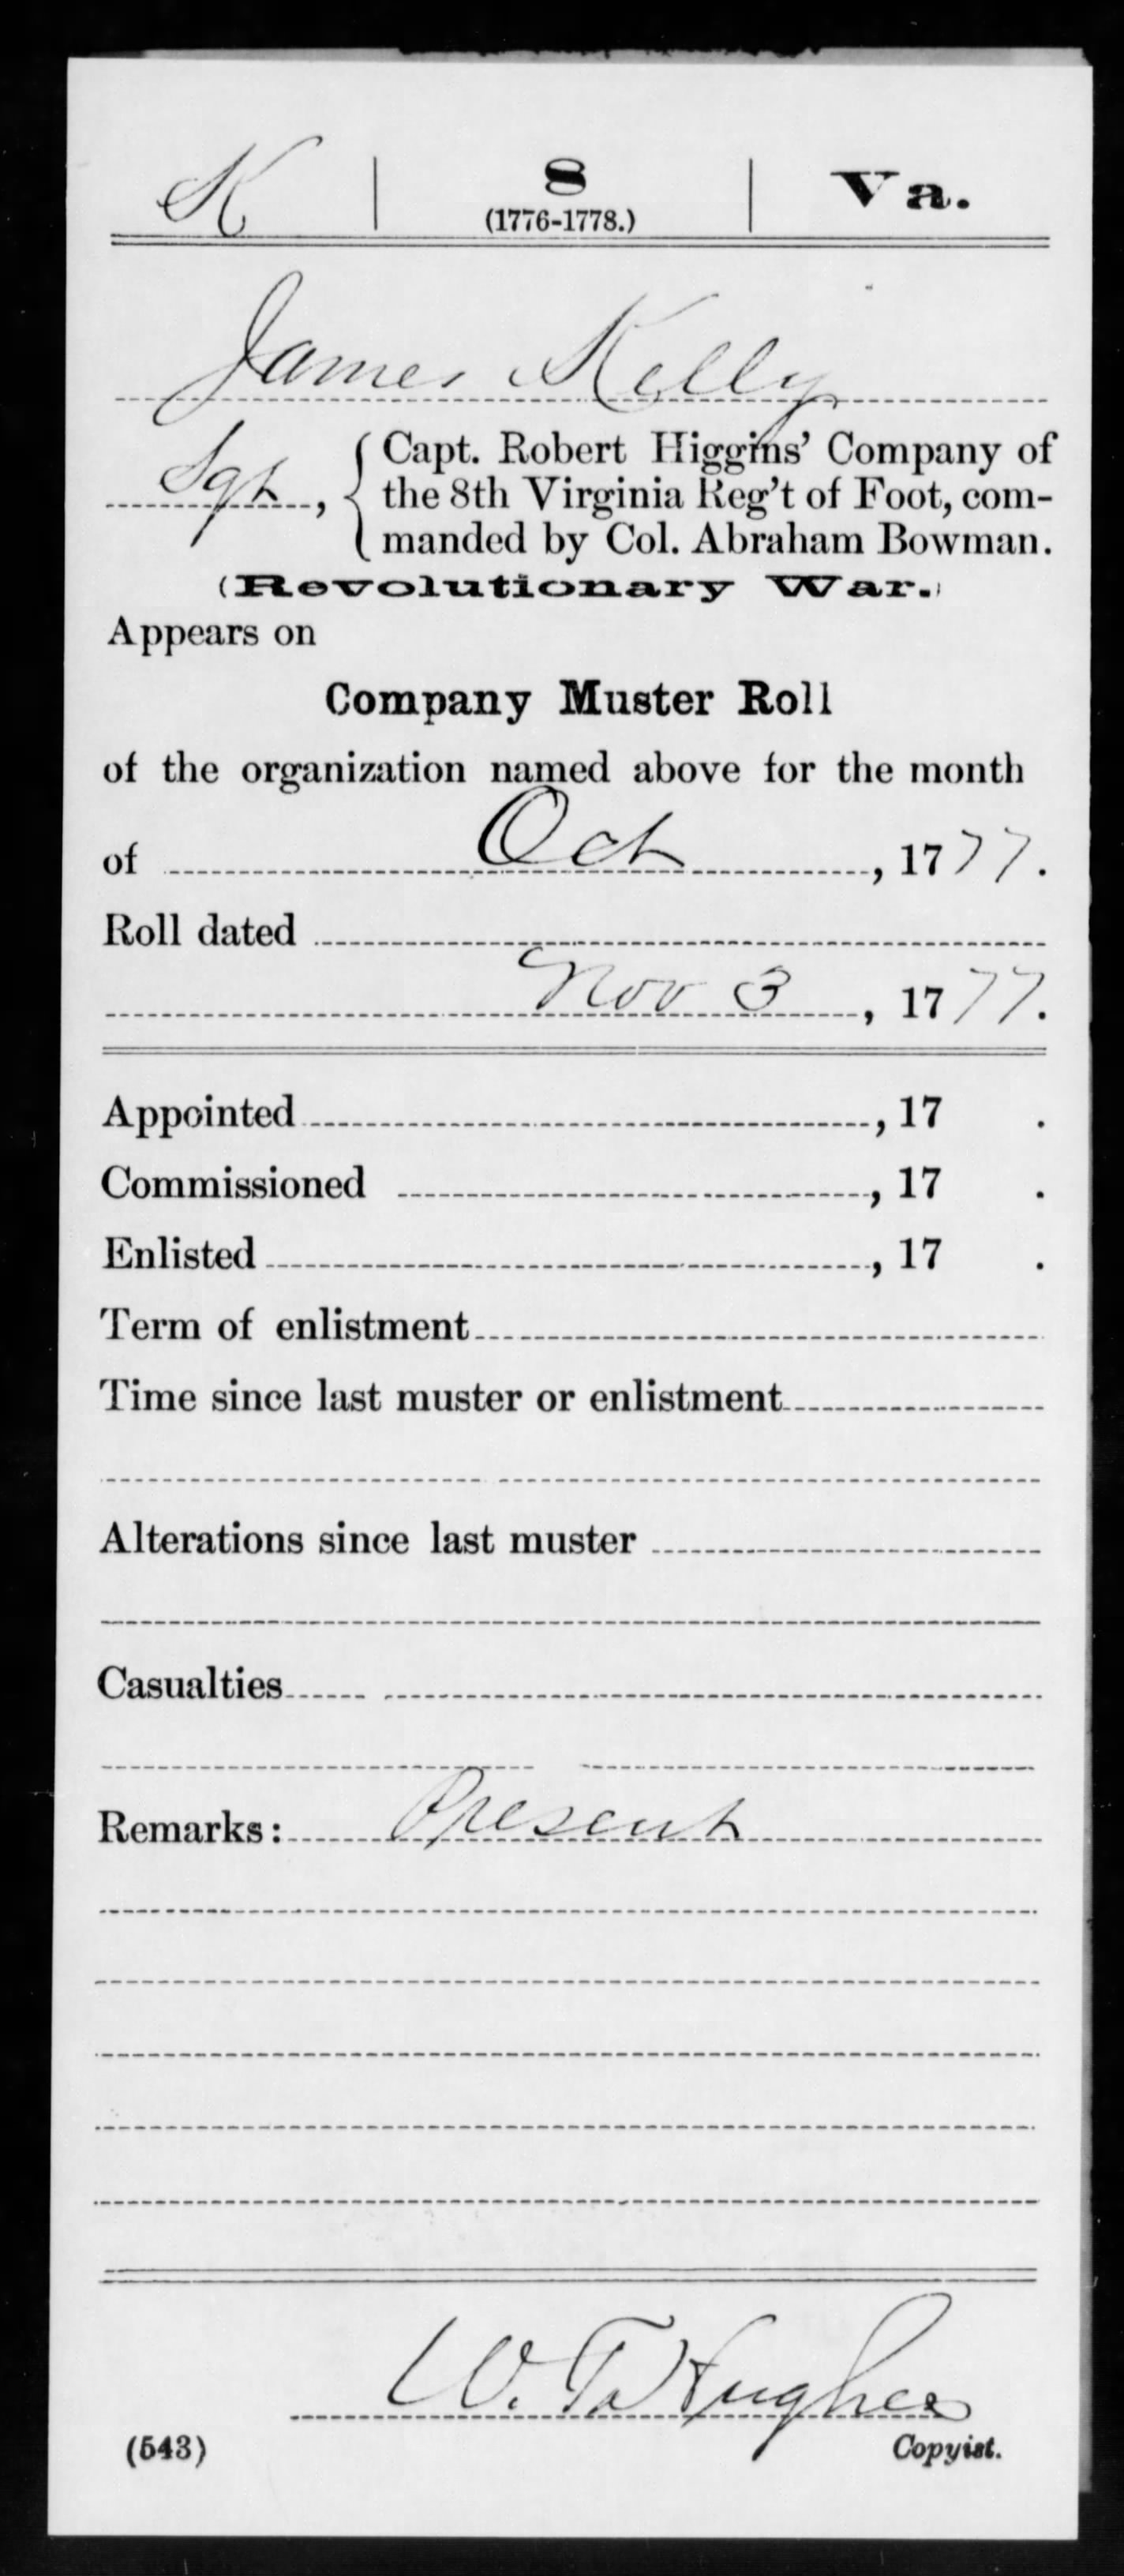 K | 8 | Va.
(1776-1778.)
James Kelly
Sgt, { Capt. Robert Higgins' Company of
the 8th Virginia Reg't of Foot, com-
manded by Col. Abraham Bowman.
(Revolutionary War.)
Appears on
Company Muster Roll
of the organization named above for the month
of Oct, 1777.
Roll dated
Nov 3, 1777.
Appointed, 17 .
Commissioned, 17 .
Enlisted, 17 .
Term of enlistment
Time since last muster or enlistment
Alterations since last muster
Casualties
Remarks: Present
W. T. Hughes
(543) Copyist.